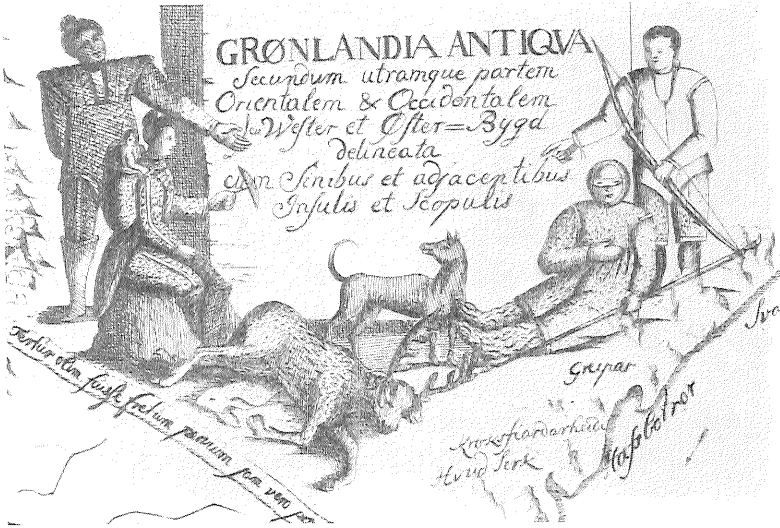 GRØNLANDIA ANTIQVA
Secundum utramque partem
Orientalem & Occidentalem
Wester et Øster=Bygd
delineata
cum Sinibus et adjacentibus
Insulis et Scopulis
Fertur olim fuisse fretum jam vero
Greipar
Kroksfiardarheide
Hvid Serk